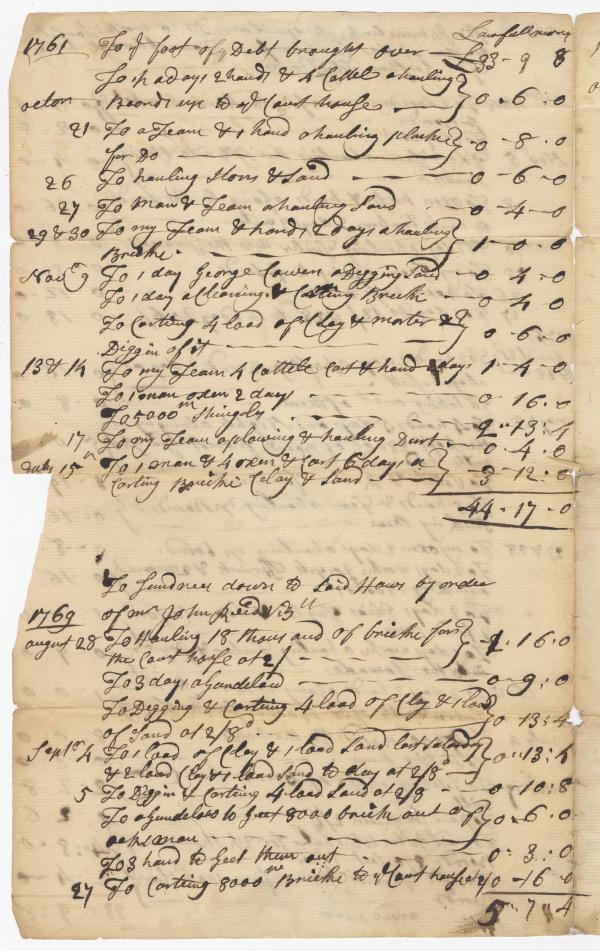 Lawfull mony
1761 To ye foot of Debt brought over £33 - 9 8
To days 2 hands & 4 Cattel a hauling
Boards up to ye Court house 0 - 6 - 0
21 To a Team & 1 hand a hauling
for Do 0 - 8 - 0
26 To hauling Stons & Sand 0 - 6 - 0
27 To Man & Team a hauling Sand 0 - 4 - 0
29 & 30 To my Team & hands 2 days a hauling
Bricke 1 - 0 - 0
Novr 9 To 1 day George Cowen a Digging Sand 0 4 - 0
To 1 day a Cleaning & Bricke 0 - 4 0
To Carting 4 load of Cley & morter &
Diggin of it 0 - 6 - 0
13 & 14 To my Team 4 Cattele Cart & hand 2 days 1 - 4 - 0
To 1 man oxen 2 days 0 16 - 0
To 5000 Shingels 2 - 13 : 4
17 To my Team a plowing & hauling Durt 0 - 4 - 0
July 15 To 1 man & 4 oxen & Cart 6 days a
Carting Bricke Cley & Sand 3 - 12 - 0
44 - 17 - 0
To Sundries down to Said Hows by order
of mr John Reid Viz
1769
august 28 To Hauling 18 thousand of bricke for
the Court house at 2/ 1 - 16 - 0
To 3 days a Gundelow 0 - 9 : 0
To Digging & Carting 4 load of Cley & 1 load
of Sand at 2/8d 0 13 : 4
Septr 4 To 1 load of Cley & 1 load Sand last Saturday
& 2 load Cley & 1 load Sand to day at 2/8d 0 - 13 : 4
5 To Diggin & Carting 4 load Sand at 2/8 0 - 10 : 8
To a Gundelow to Geet 8000 bricke out of
0 - 6 - 0
To 3 hand to Geet them out 0 - 3 : 0
27 To Carting 8000 Bricke to ye Court house 0 - 16 - 0
5 - 7 - 4